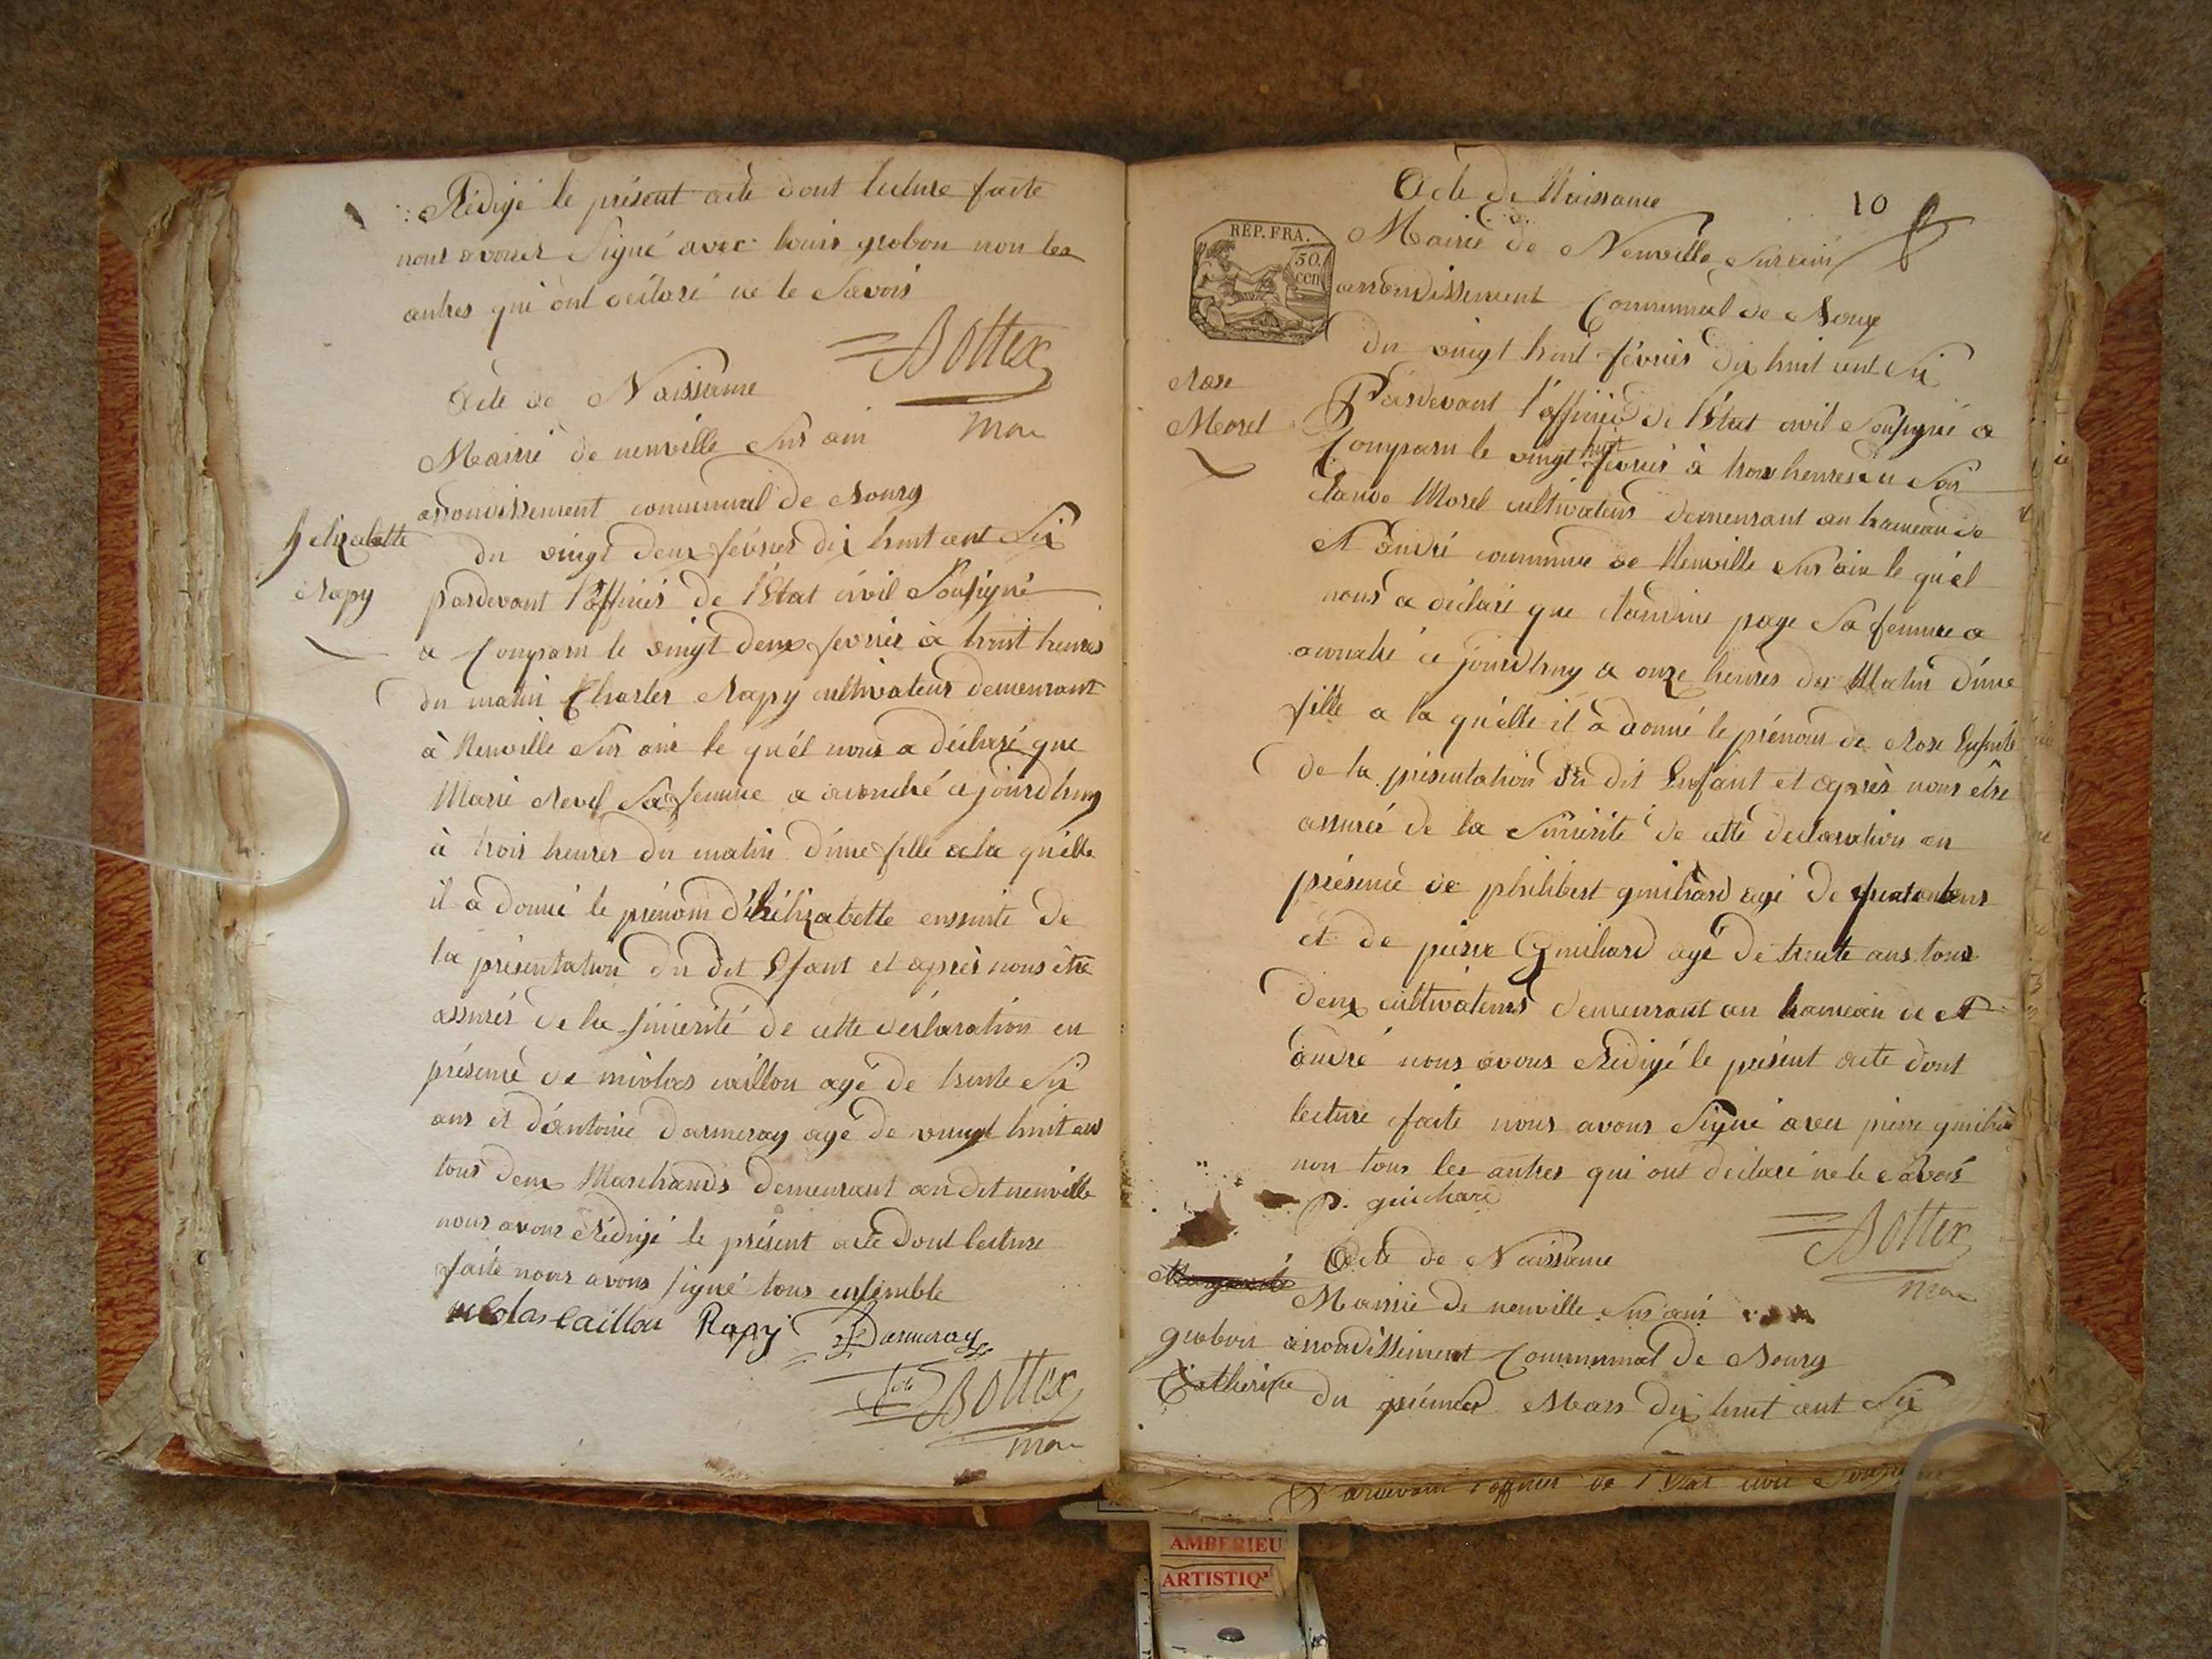 Rédigé le présent acte dont lecture faite
nous avons Signé avec louis grobon non les
autres qui ont déclaré ne le Savoir
Bottex
mre
Acte de Naissance
Mairie de neuville Sur ain
arrondissement communal de Bourg
du vingt deux février dix huit cent Six
helizabette
Rapy
pardevant l'officier de l'Etat civil Sousigné
a Comparu le vingt deux fevrier à huit heures
du matin Charles Rapy cultivateur demeurant
à Neuville Sur ain le quél nous a déclaré que
Marie Revel Sa femme a accouché ce jourdhuy
à trois heures du matin d'une fille a la quélle
il a donné le prénom d'hélizabette enssuite de
la présentation du dit Efant et après nous être
assurés de la sincérité de cette déclaration en
présence de nicolas caillou agé de trente Six
ans et d'antoine darmeray agé de vingt huit ans
tous deux Marchands demeurant au dit neuville
nous avons Rédigé le présent acte dont lecture
faite nous avons signé tous ensemble
nicolas caillou Rapy Darmeray
Bottex
mre
Acte de Naissance
10
REP. FRA.
50.
cen
Mairie de Neuville Sur ain
arrondissement Communal de Bourg
du vingt huit février dix huit cent Six
Rose
Morel
Pardevant l'officier de l'Etat civil Sousigné a
Comparu le vingt huit fevrier à trois heures du Soir
claude Morel cultivateur demeurant au hameau de
St andré commune de Neuville Sur ain le quél
nous a déclaré que claudine page Sa femme a
accouché ce jourdhuy a onze heures du Matin d'une
fille a la quélle il a donné le prénom de Rose Ensuite
de la présentation du dit Enfant et après nous être
assurés de la Sincérité de cette declaration en
présence de philibert guichard agé de ans
et de pierre Guichard agé de trente ans tous
deux cultivateurs demeurant au hameau de St
andré nous avons Rédigé le présent acte dont
lecture faite nous avons Signé avec pierre guichard
non tous les autres qui ont declaré ne le Savoir
p. guichard
Bottex
mre
Acte de Naissance
Mairie de neuville Sur ain
grobon
Catherine
arrondissement Communal de Bourg
du premier Mars dix huit cent Six
Pardevant l'officier de l'Etat civil
AMBERIEU
ARTISTIQ